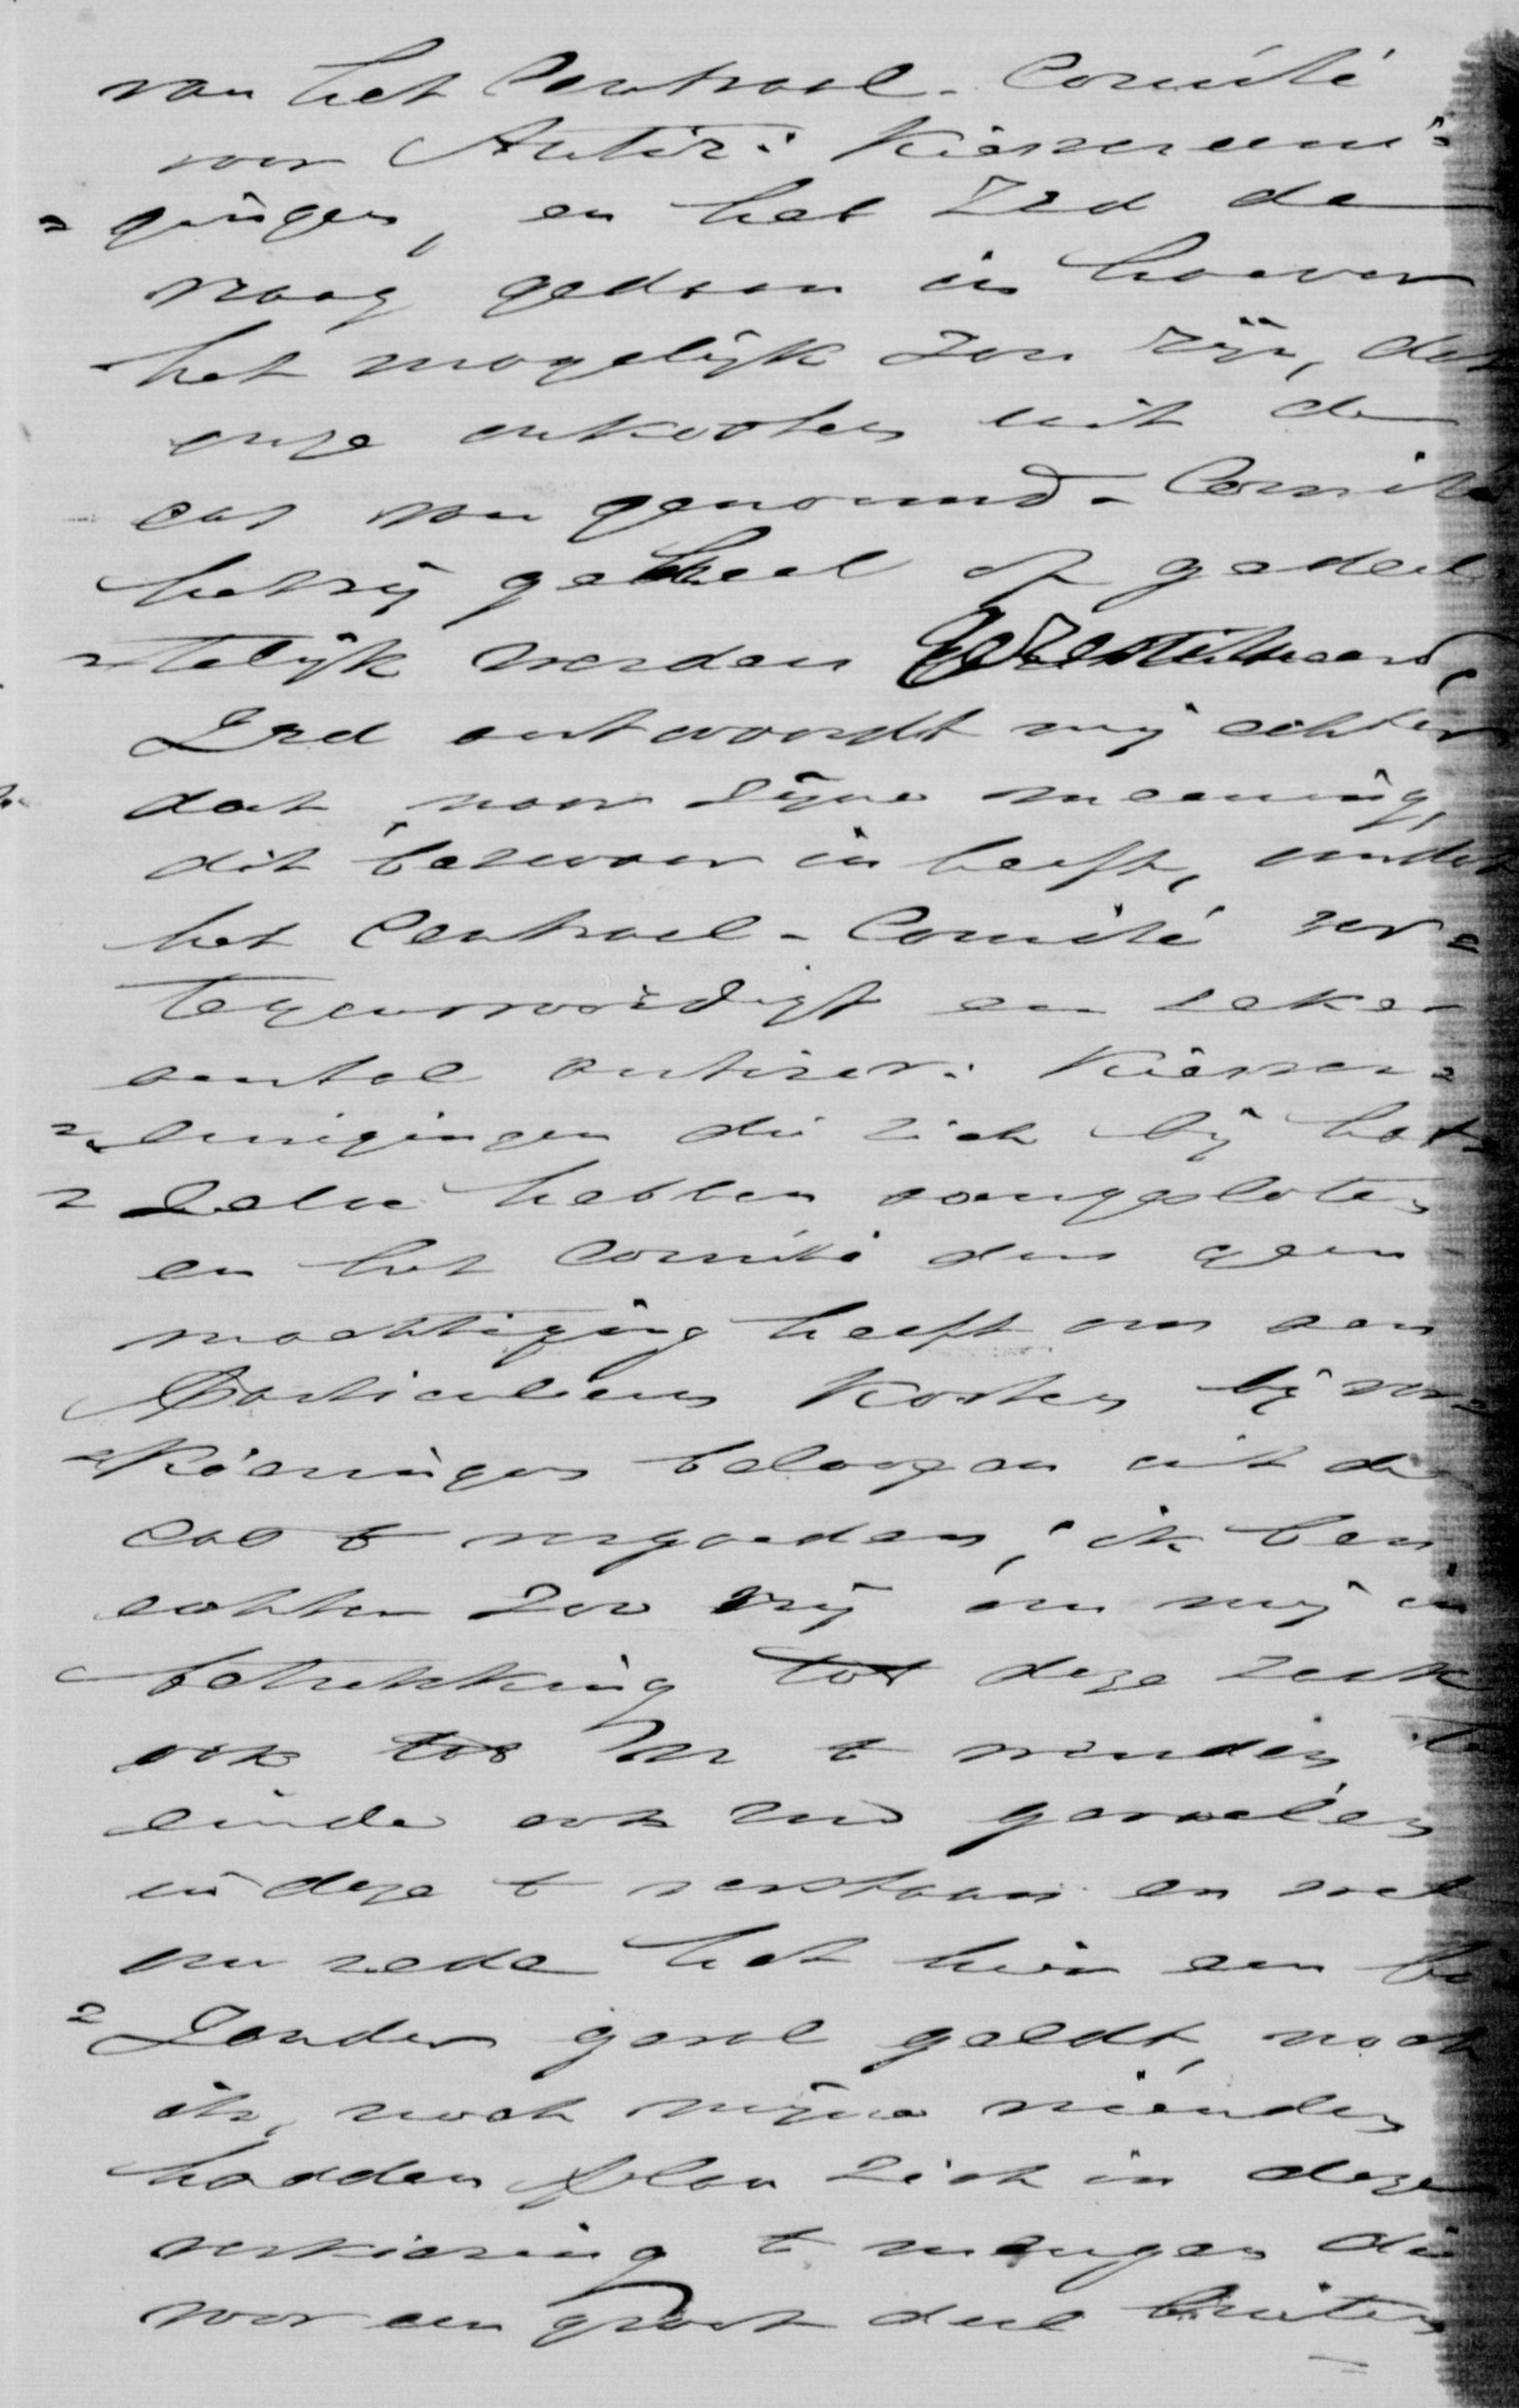 van het Centraal-Comité
voor Antir: Kiesvereeni=
=gingen, en heb ZEd de
vraag gedaan in hoever
het mogelijk zou zijn, dat
onze onkosten uit de
cas van genoemd-Comité
hetzij geheel of gedeel
=telijk werden gerestitueerd,
ZEd antwoordt mij echter
dat, naar zijne meening,
dit bezwaar in heeft, omdat
het Centraal-Comité ver=
tegenwoordigt een zeker
aantal antirev: Kiesver=
=eenigingen die zich bij het=
=zelve hebben aangesloten
en het Comité dus geen
machtiging heeft om aan
Particulieren Kosten bij ver=
=kiezingen belangen uit de
cas te vergoeden; ik ben
echter zoo vrij om mij in
betrekking tot deze zaak
ook tot U te wenden, te
einde ook uw gevoelen
in deze te verstaan en wel
om rede het hier een bij
=zonder geval geldt, noch
ik, noch mijne vrienden
hadden plan zich in deze
verkiezing te mengen die
voor een groot deel buiten